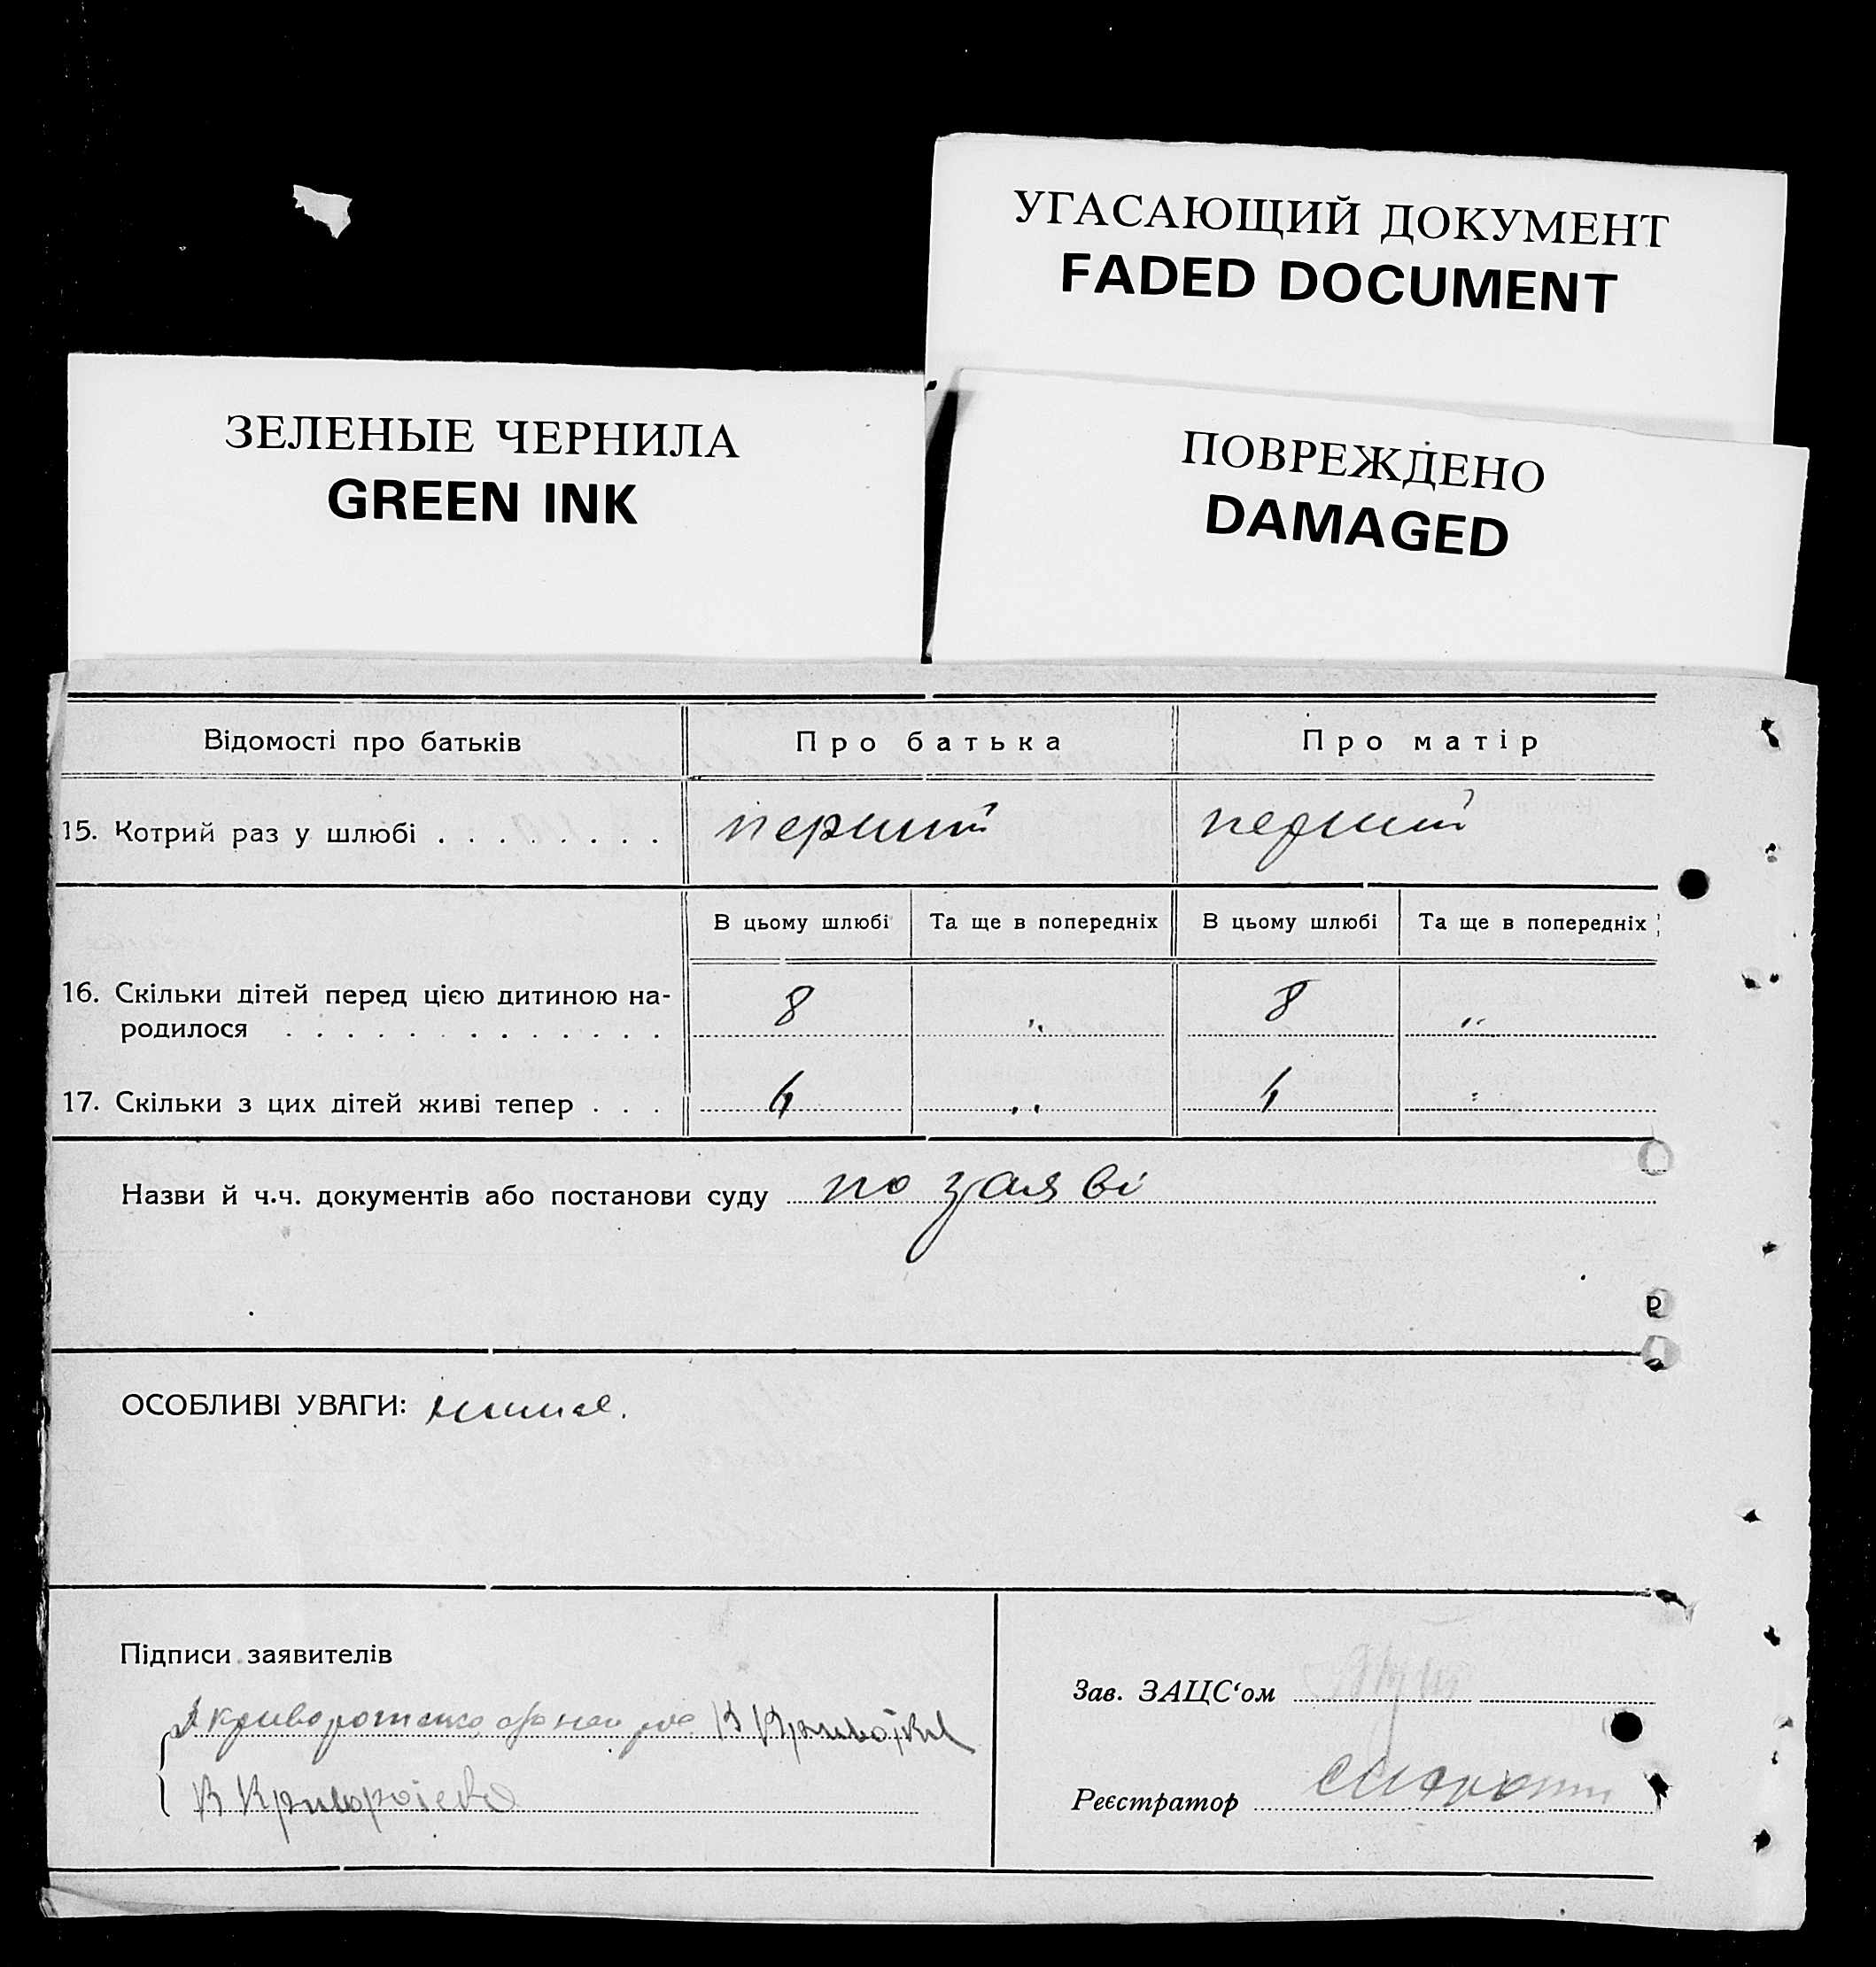 УГАСАЮЩИЙ ДОКУМЕНТ
FADED DOCUMENT
ЗЕЛЕНЫЕ ЧЕРНИЛА
GREEN INK
ПОВРЕЖДЕНО
DAMAGED
Відомості про батьків Про батька Про матір
15. Котрий раз у шлюбі . . . . . . . . перший перший
В цьому шлюбі Та ще в попередніх В цьому шлюбі Та ще в попередніх
16. Скільки дітей перед цією дитиною на- 8 „ 8 „
родилося . . . . . . . . . . . . .
17. Скільки з цих дітей живі тепер . . .
Назви й ч.ч. документів або постанови суду по заяві
ОСОБЛИВІ УВАГИ:
Підписи заявителів
Зав. ЗАЦС‘ом
Реєстратор